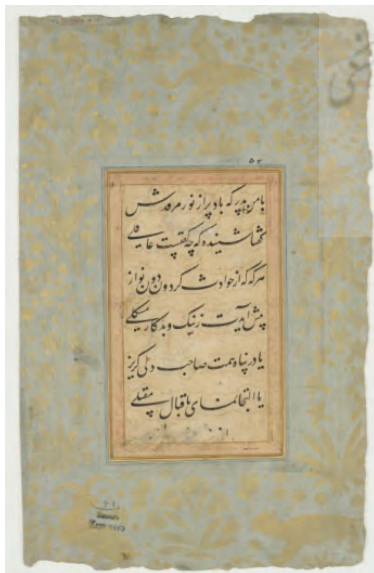 ۵۲
با من پدر که باد پر از نور مرقدش
گفتا شنیده که چه گفتست عاقلی
هرگه که از حوادث گردون دون نواز
پیش آیدت ز نیک و بد کار مشکلی
یا در پناه همت صاحب دلی گریز
یا التجا نمای باقبال مقبلی